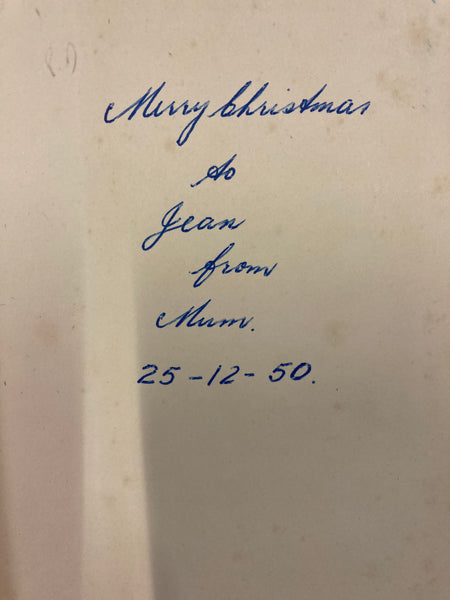 Merry Christmas
to
Jean
from
Mum.
25-12-50.